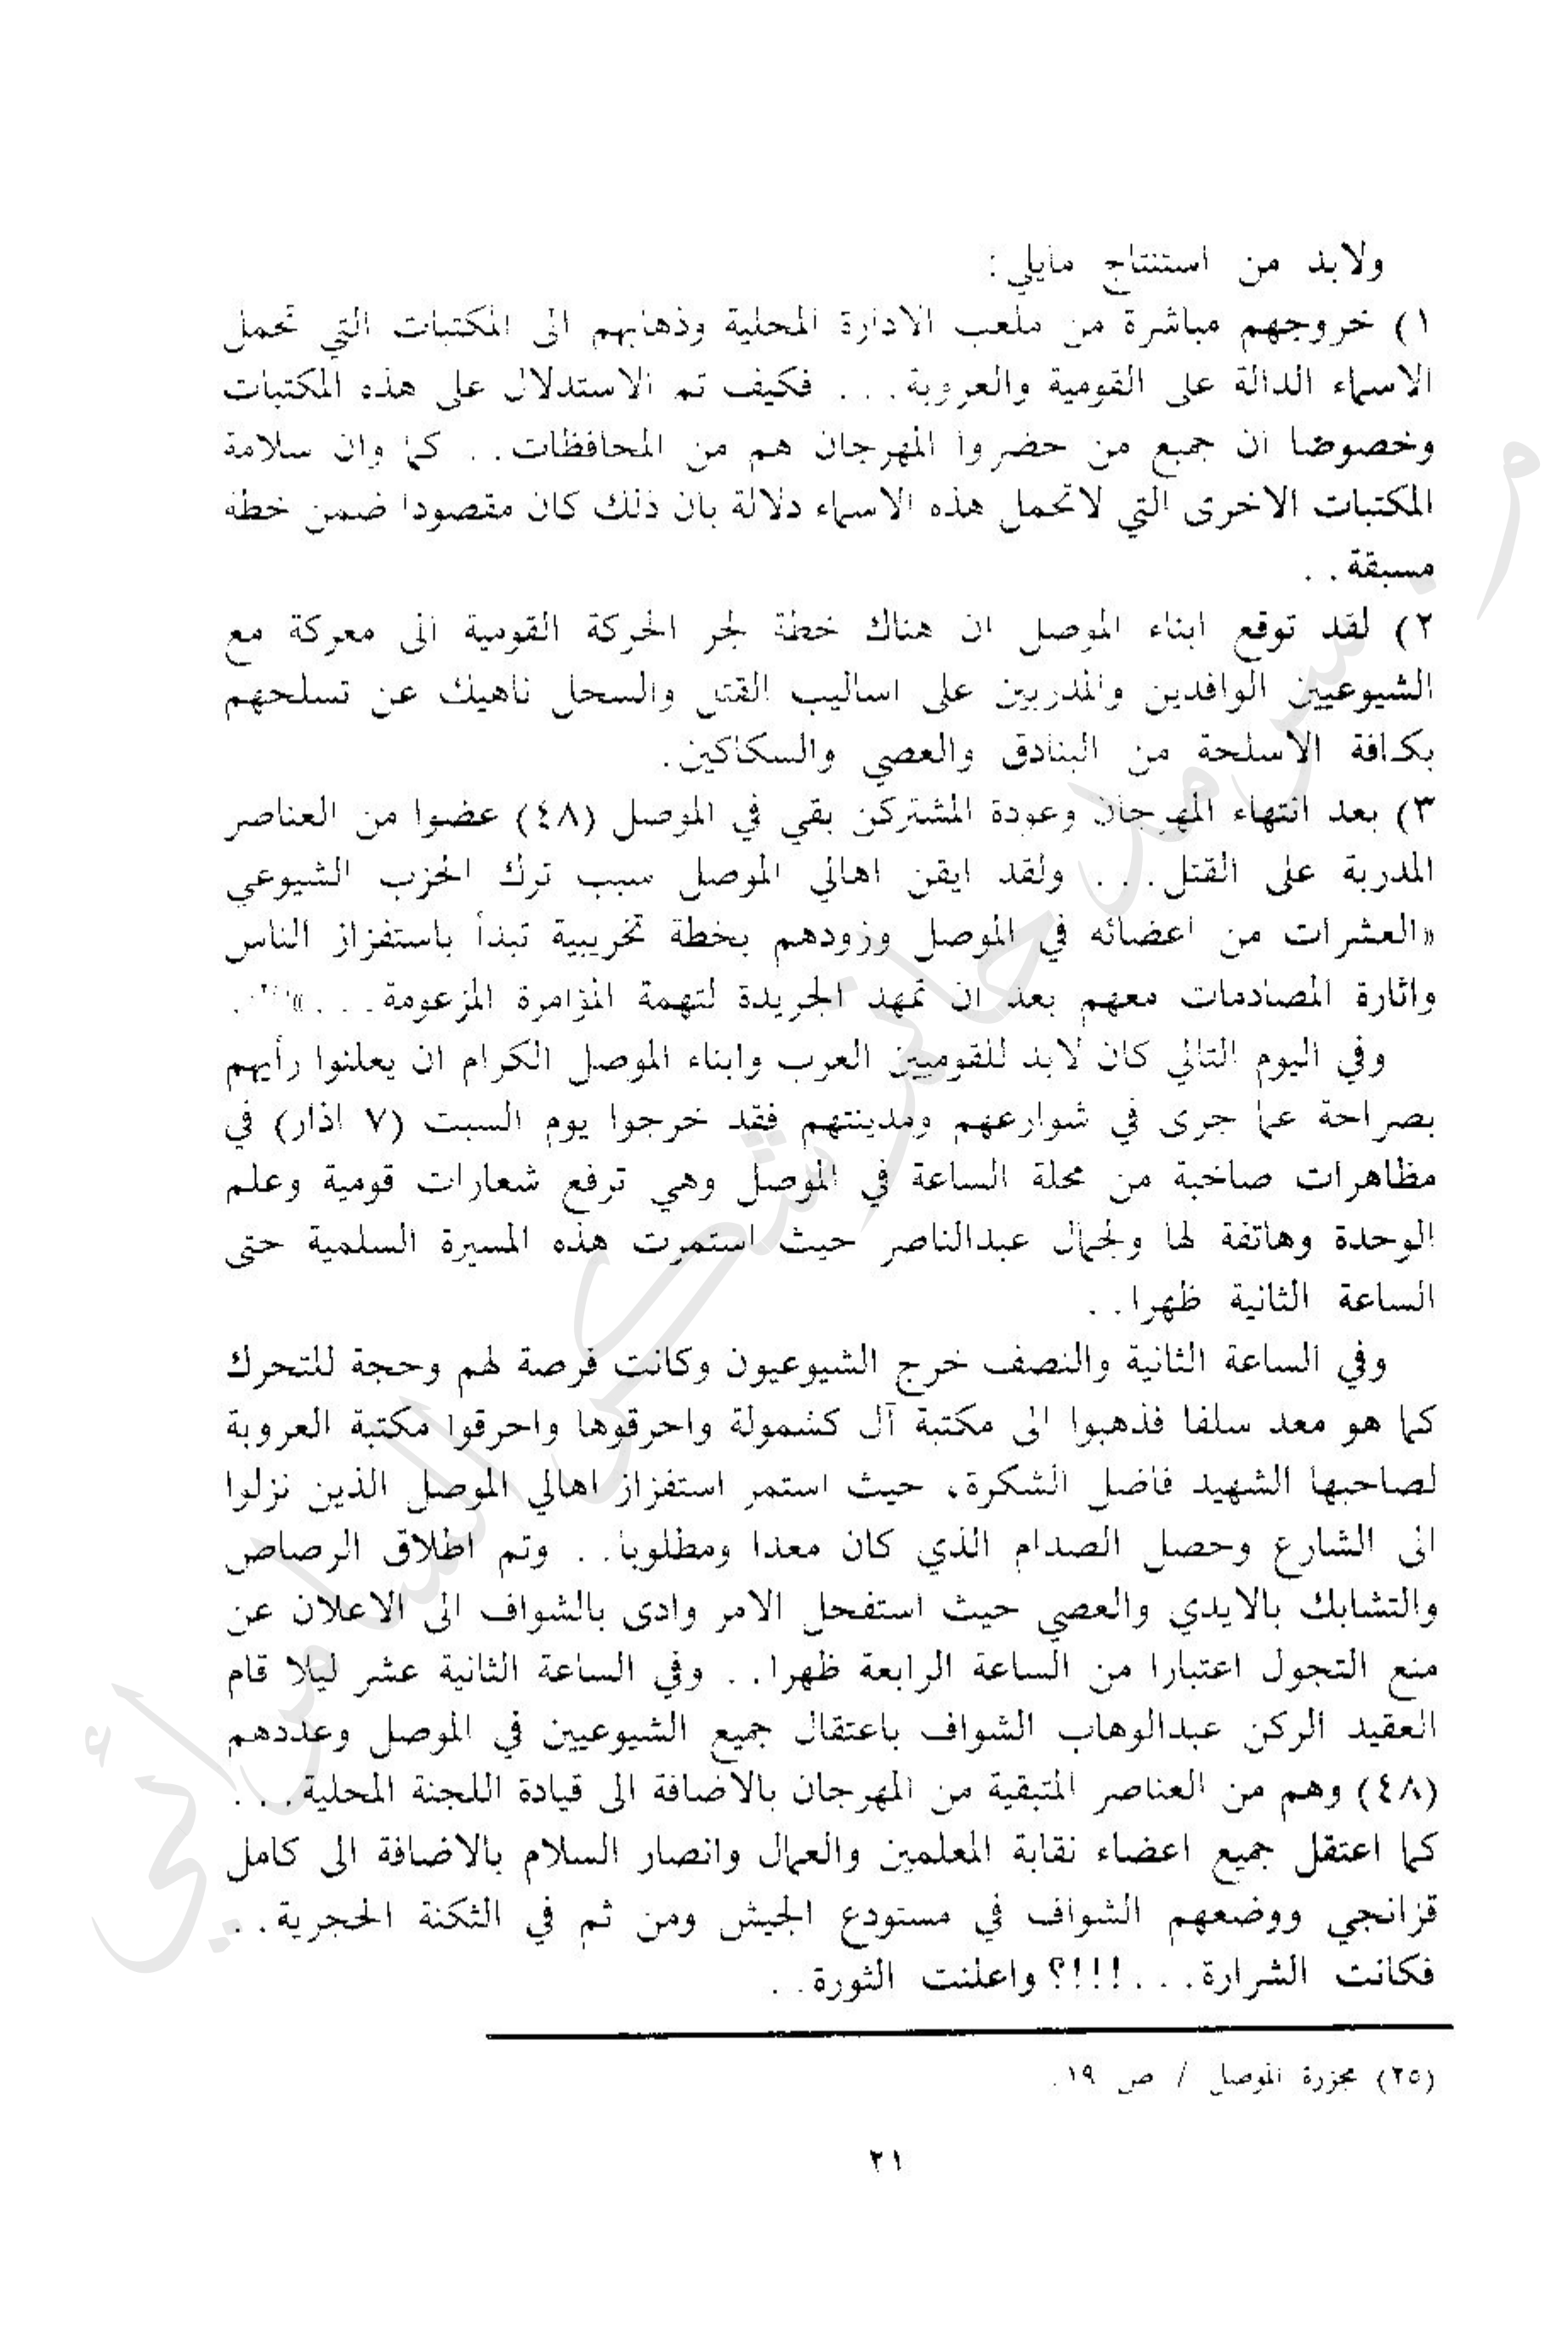 ولابد من استنتاج مايلي:
١) خروجهم مباشرة من ملعب الادارة المحلية وذهابهم الى المكتبات التي تحمل
الاسماء الدالة على القومية والعروبة. . . فكيف تم الاستدلال على هذه المكتبات
وخصوصا ان جميع من حضروا المهرجان هم من المحافظات. . كما وان سلامة
المكتبات الاخرى التي لاتحمل هذه الاسماء دلالة بان ذلك كان مقصودا ضمن خطة
مسبقة. .
٢) لقد توقع ابناء الموصل ان هناك خطة لجر الحركة القومية الى معركة مع
الشيوعيين الوافدين والمدربين على اساليب القتل والسحل ناهيك عن تسلحهم
بكافة الاسلحة من البنادق والعصي والسكاكين.
٣) بعد انتهاء المهرجان وعودة المشتركن بقي في الموصل (٤٨) عضوا من العناصر
المدربة على القتل. . . ولقد ايقن اهالي الموصل سبب ترك الحزب الشيوعي
«العشرات من اعضائه في الموصل وزودهم بخطة تخريبية تبدأ باستفزاز الناس
واثارة المصادمات معهم بعد ان تمهد الجريدة لتهمة المؤامرة المزعومة. . .»
وفي اليوم التالي كان لابد للقوميين العرب وابناء الموصل الكرام ان يعلنوا رأيهم
بصراحة عما جرى في شوارعهم ومدينتهم فقد خرجوا يوم السبت (٧ اذار) في
مظاهرات صاخبة من محلة الساعة في الموصل وهي ترفع شعارات قومية وعلم
الوحدة وهاتفة لها ولجمال عبدالناصر حيث استمرت هذه المسيرة السلمية حتى
الساعة الثانية ظهرا. .
وفي الساعة الثانية والنصف خرج الشيوعيون وكانت فرصة لهم وحجة للتحرك
كما هو معد سلفا فذهبوا الى مكتبة آل كشمولة واحرقوها واحرقوا مكتبة العروبة
لصاحبها الشهيد فاضل الشكرة، حيث استمر استفزاز اهالي الموصل الذين نزلوا
الى الشارع وحصل الصدام الذي كان معدا ومطلوبا. . وتم اطلاق الرصاص
والتشابك بالايدي والعصي حيث استفحل الامر وادى بالشواف الى الاعلان عن
منع التجول اعتبارا من الساعة الرابعة ظهرا. . وفي الساعة الثانية عشر ليلا قام
العقيد الركن عبدالوهاب الشواف باعتقال جميع الشيوعيين في الموصل وعددهم
(٤٨) وهم من العناصر المتبقية من المهرجان بالاضافة الى قيادة اللجنة المحلية. . .
كما اعتقل جميع اعضاء نقابة المعلمين والعمال وانصار السلام بالاضافة الى كامل
قزانجي ووضعهم الشواف في مستودع الجيش ومن ثم في الثكنة الحجرية. .
فكانت الشرارة. . .!!!؟ واعلنت الثورة. .
(٢٥) مجزرة الموصل / ص ١٩.
٢١